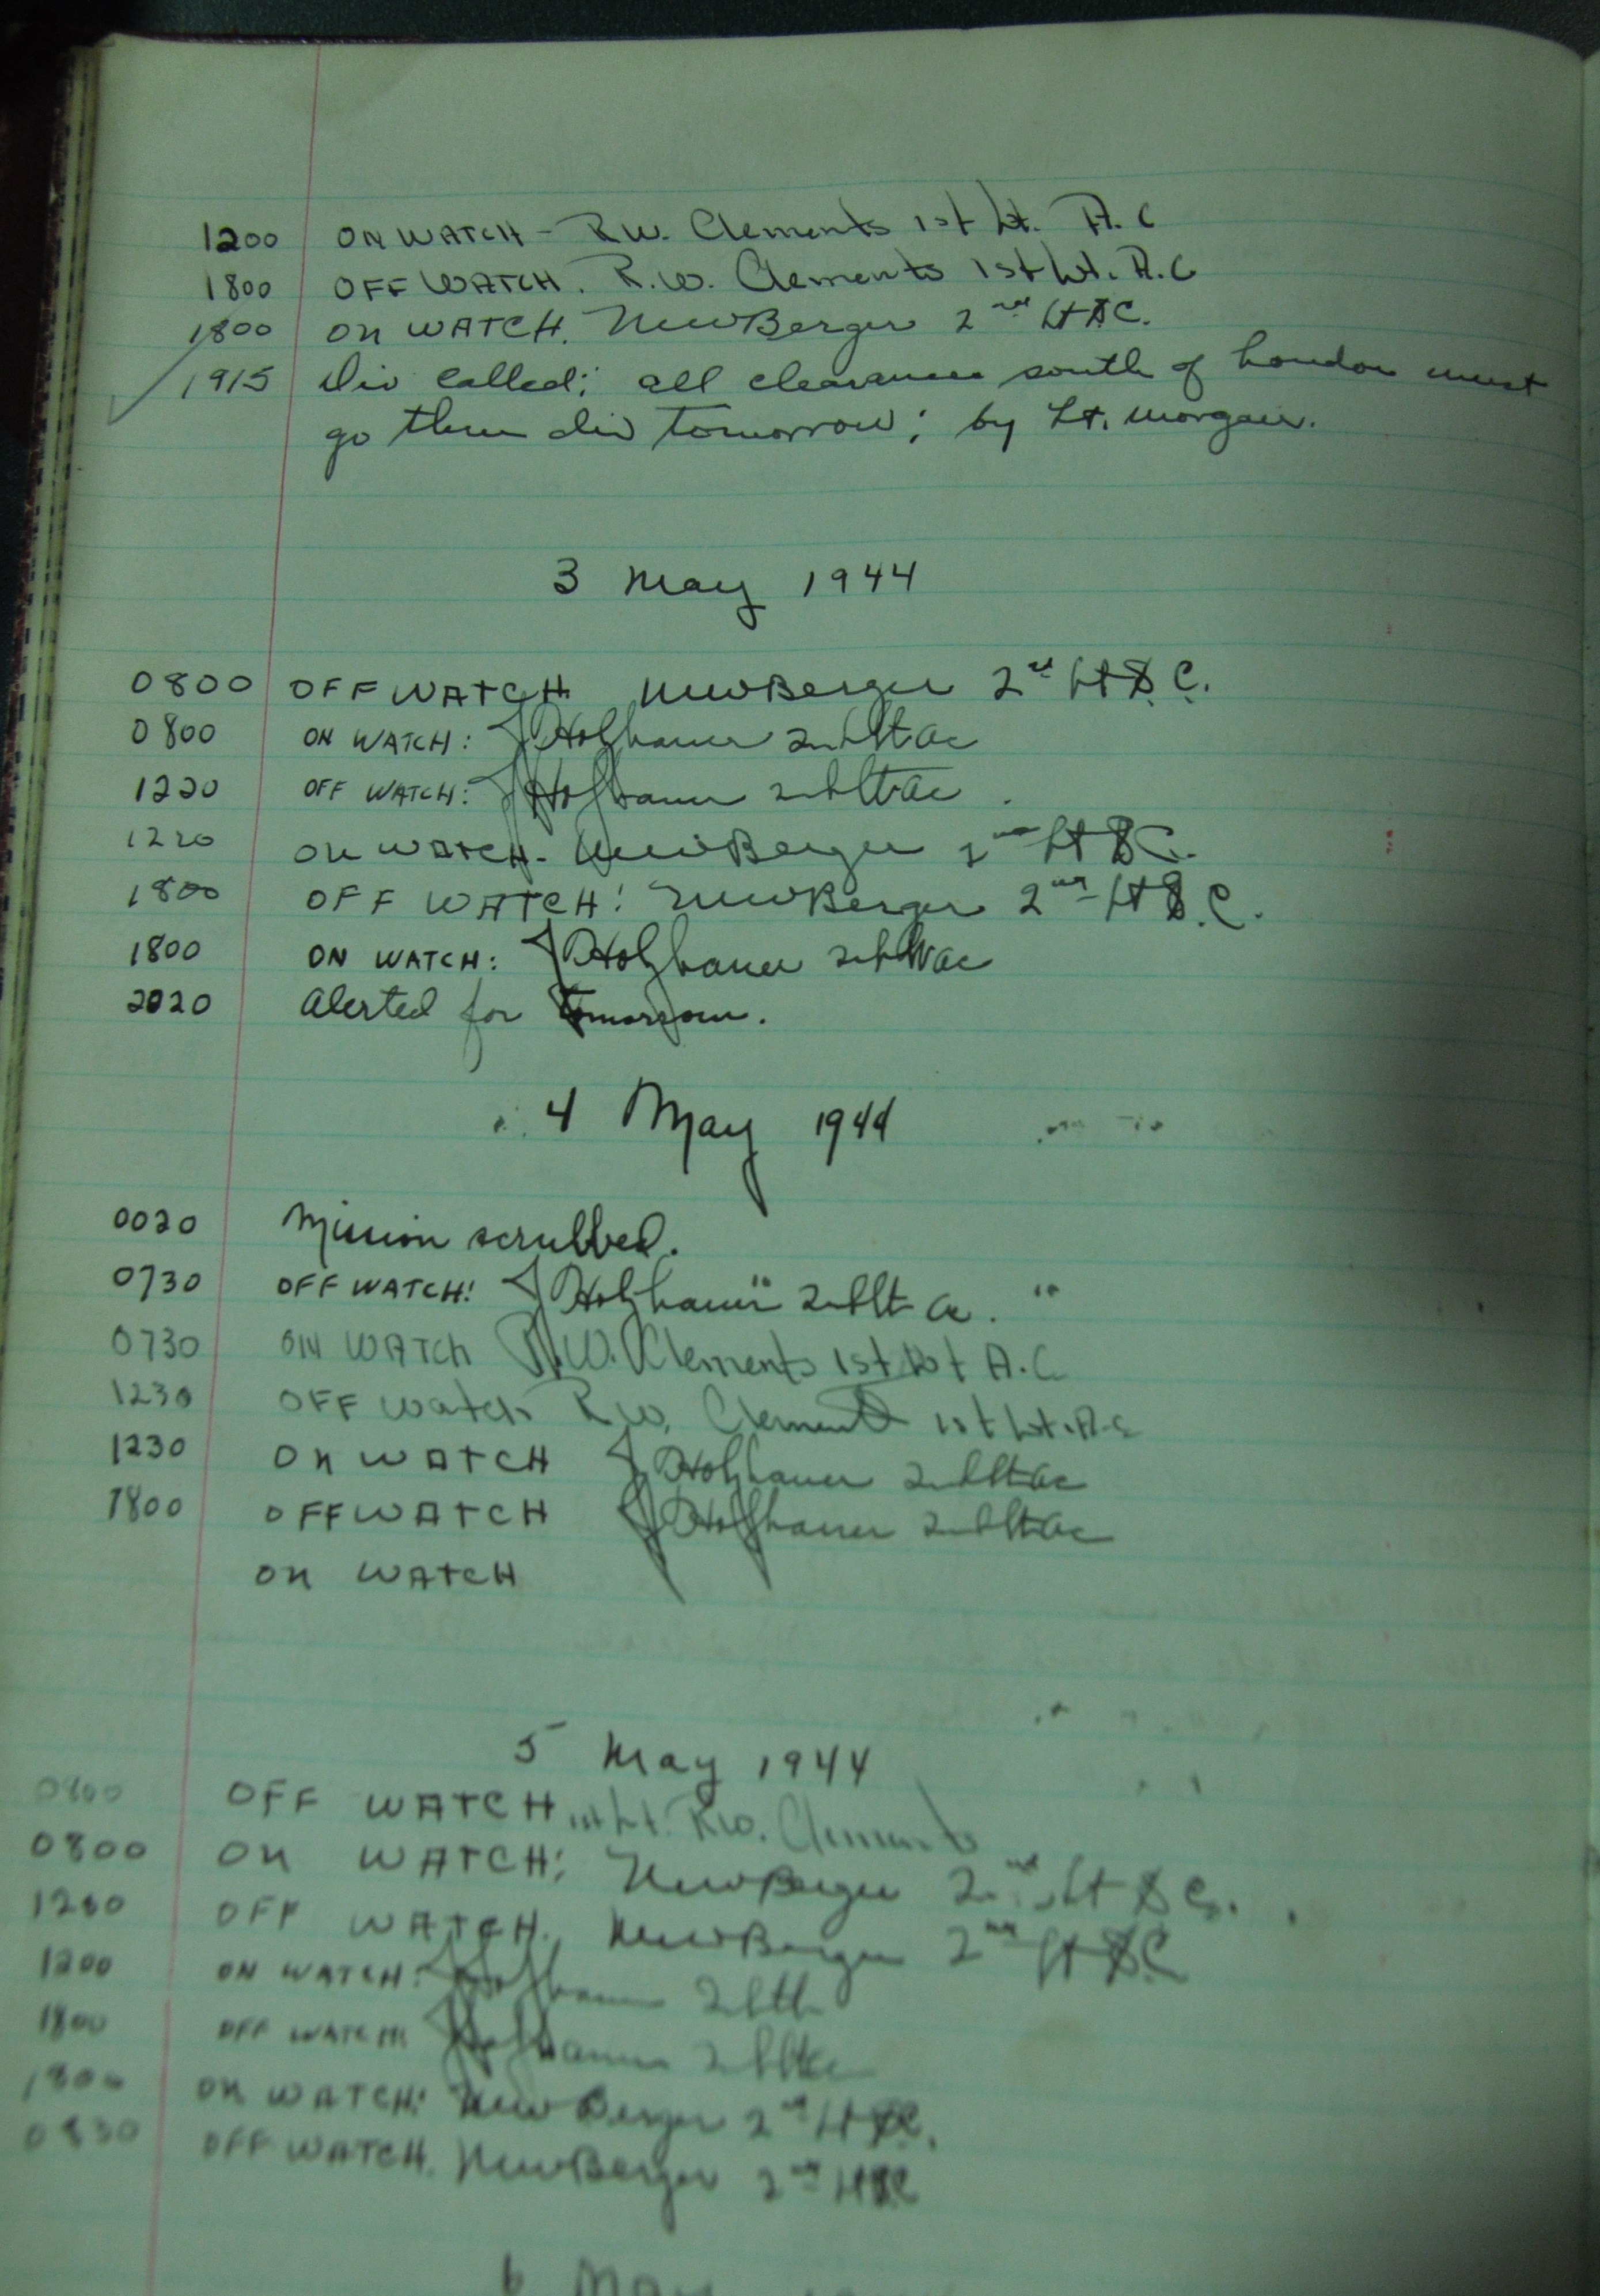 1200 ON WATCH - R.W. Clements 1st Lt. A.C
1800 OFF WATCH. R.W. Clements 1st Lt. A.C
1800 ON WATCH. NewBerger 2nd Lt A.C.
1915 Div called; all clearances south of London must
go thru div tomorrow; by Lt. Morgan.
3 May 1944
0800 OFF WATCH NewBerger 2nd Lt A.C.
0800 ON WATCH: J Holzhauer 2nd Lt ac
1220 OFF WATCH: J Holzhauer 2nd Lt ac
1220 ON WATCH. NewBerger 2nd Lt A.C.
1800 OFF WATCH: NewBerger 2nd Lt A.C.
1800 ON WATCH: J Holzhauer 2nd Lt ac
2020 Alerted for tomorrow.
4 May 1944
0020 Mission scrubbed.
0730 OFF WATCH: J Holzhauer 2nd Lt ac.
0730 ON WATCH R.W. Clements 1st Lt A.C.
1230 OFF Watch R.W. Clements 1st Lt. A.C
1230 ON WATCH J Holzhauer 2nd Lt ac
1800 OFF WATCH J Holzhauer 2nd Lt ac
ON WATCH
5 May 1944
0800 OFF WATCH 1st Lt. R.W. Clements
0800 ON WATCH: NewBerger 2nd Lt A.C.
1200 OFF WATCH. NewBerger 2nd Lt A.C
1200 ON WATCH: J Holzhauer 2nd Lt
1800 OFF WATCH: J Holzhauer 2nd Lt ac
1800 ON WATCH: NewBerger 2nd Lt A.C.
0830 OFF WATCH. NewBerger 2nd Lt A.C
6 May